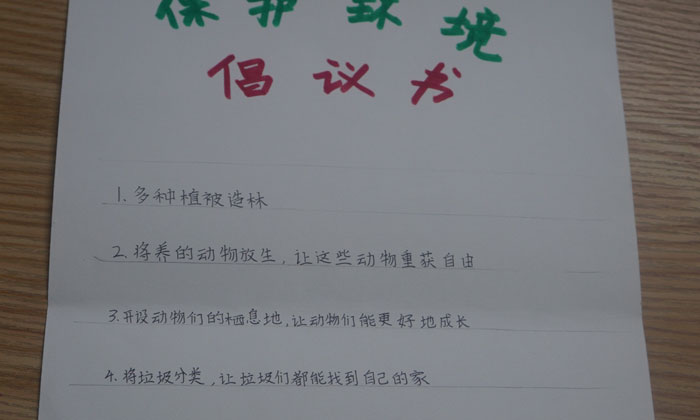 保护环境
倡议书
1.多种植被造林
2.将养的动物放生,让这些动物重获自由
3.开设动物们的栖息地,让动物们能更好地成长
4.将垃圾分类,让垃圾们都能找到自己的家